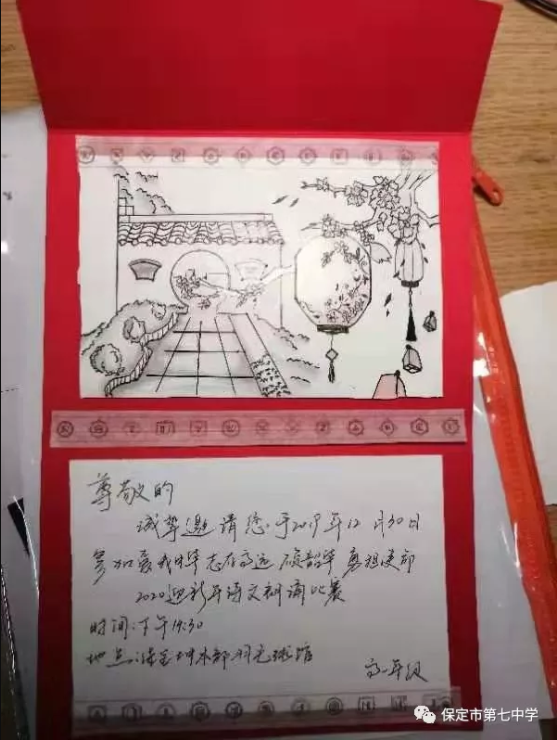 尊敬的
诚挚邀请您于2019年12月30日
参加 我中华 志存高远 颂韶华 勇担使命
2020迎新年诗文朗诵比赛
时间:下午14:30
地点: 本部羽毛球馆
高一年级
保定市第七中学